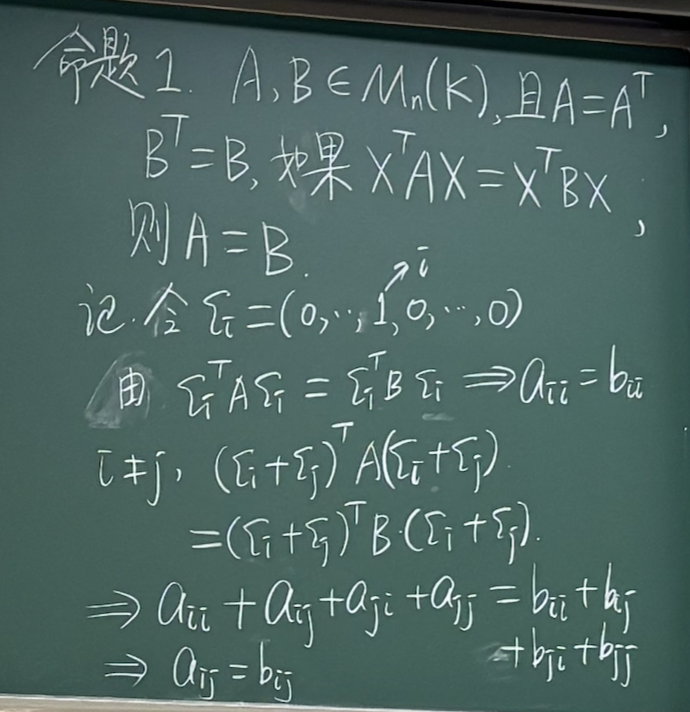 命题1. A,B∈Mₙ(K),且A=Aᵀ,
Bᵀ=B,如果XᵀAX=XᵀBX,
则A=B.
i
记.令 εᵢ=(0,…,1,0,…,0)
由 εᵢᵀAεᵢ=εᵢᵀBεᵢ ⇒aᵢᵢ=bᵢᵢ
i≠j, (εᵢ+εⱼ)ᵀA(εᵢ+εⱼ)
=(εᵢ+εⱼ)ᵀB·(εᵢ+εⱼ).
⇒ aᵢᵢ+aᵢⱼ+aⱼᵢ+aⱼⱼ=bᵢᵢ+bᵢⱼ
+bⱼᵢ+bⱼⱼ
⇒ aᵢⱼ=bᵢⱼ